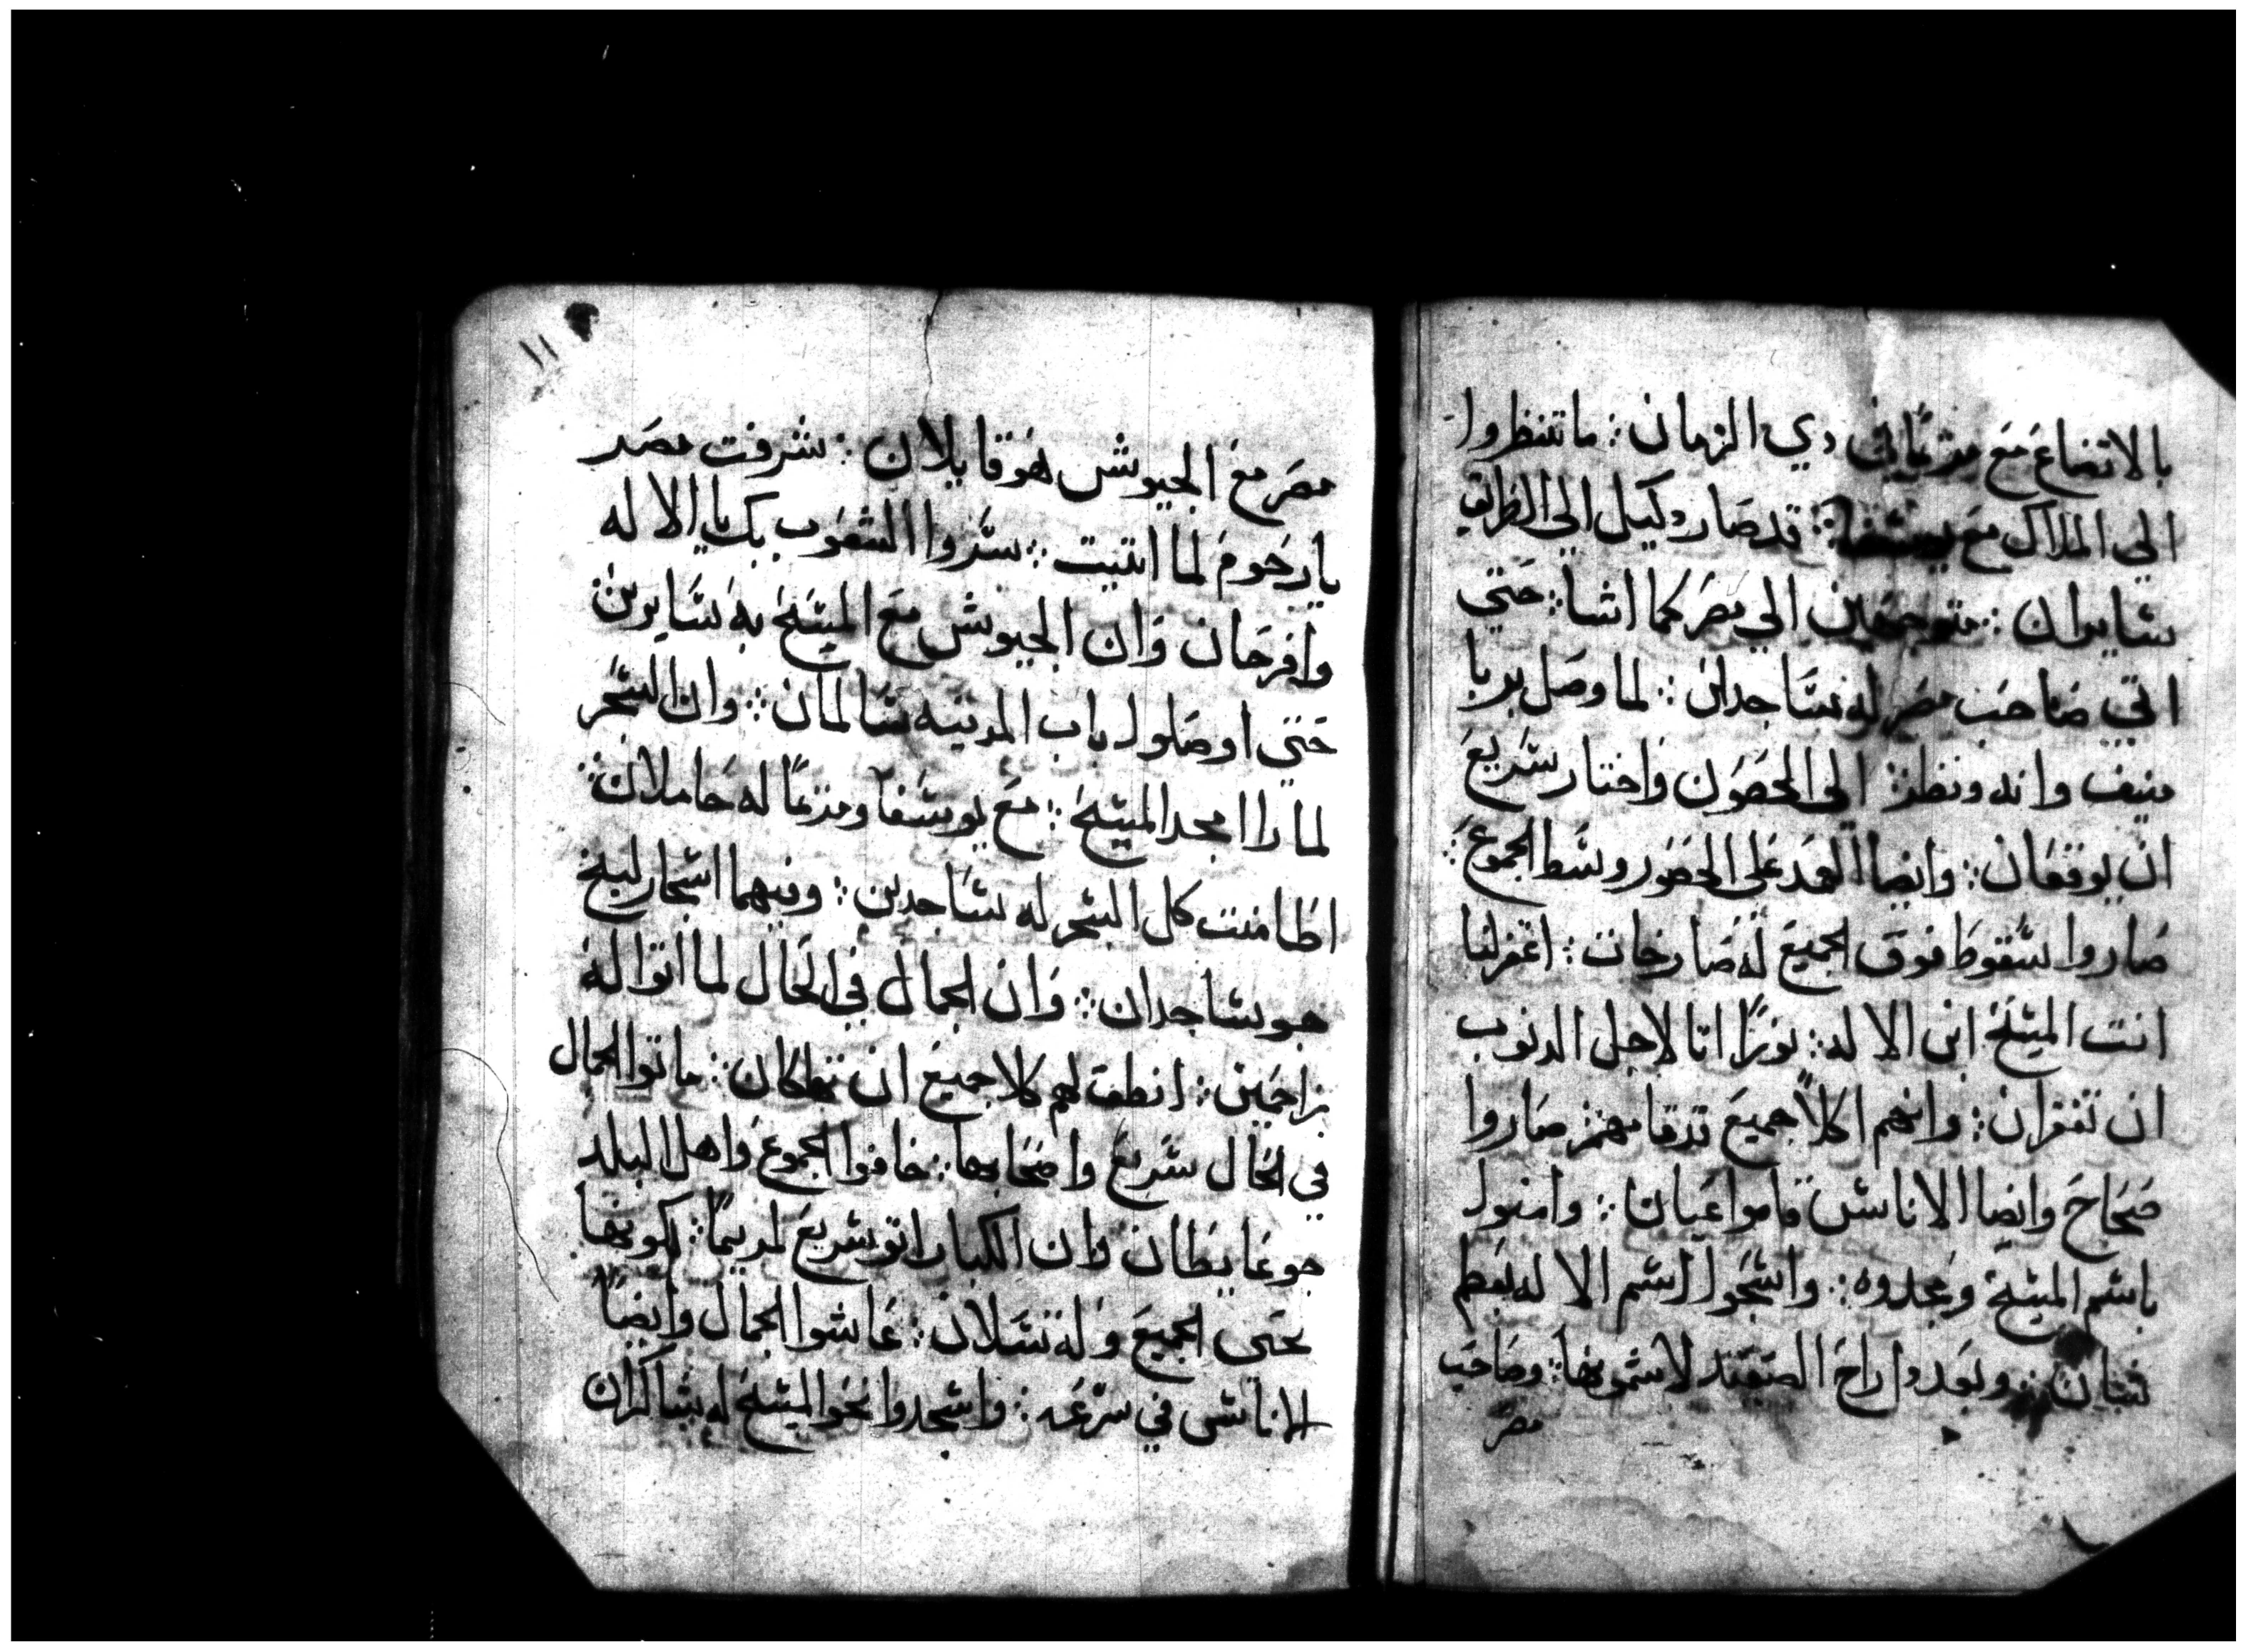 بالاتضاع مع مرتمايك دي الزمان : ما تنظروا
الي الملاك مع يوسفا : قد صار دكيل الي الطريق
سايران : متوجهين الي مصر كما اشا : حتي
اتي صاحب مصر له ساجدان : لما وصل بربا
منيف وانه ونظر الي الحصون واختار سريع
ان يوقفان : وايضا العمد علي الحصور وسط الجموع :
صاروا سقوط فوق الجميع له صارخات : اغفر لنا
انت المسيح ابن الاله : نورًا اتا لاجل الدنوب
ان تغفران : وانهم اكلاً جميع تدقا بهم صاروا
صحاح وايضا الاناس قاموا عيان : وامنوا
باسم المسيح ومجدوه : واسجوا اسم الاله بعظم
شان : وبعدوا راح الصعيد لاشمونها : وصاحب
مصر
١١
مصر مع الجيوش هو قايلان : شرفت مصر
يا رحوم لما اتيت : سروا الشعوب بك يا الاله
وافرحان وان الجيوش مع المسيح به سايرين
حتي اوصلوا باب المدينه سالمان : وان الشجر
لما راا مجد المسيح : مع يوسفا ومريما له حاملان :
اطامنت كل الشجر له ساجدين : وفيهما اشجار لبخ
هو ساجدان : وان الجمال في الحال لما اتوا له
زاحمين : انطق لهم كلا جميع ان تهلكان : ماتوا الجمال
في الحال سريع واصحابها : خافوا الجموع واهل البلد
جوعا يظان وان الكبار اتو سريع لمريما : لكونها
تحتي الجميع وله تسلان : عاشوا الجمال وايضاً
الاناس في سرعه : واسجدوا نحو المسيح له شاكران